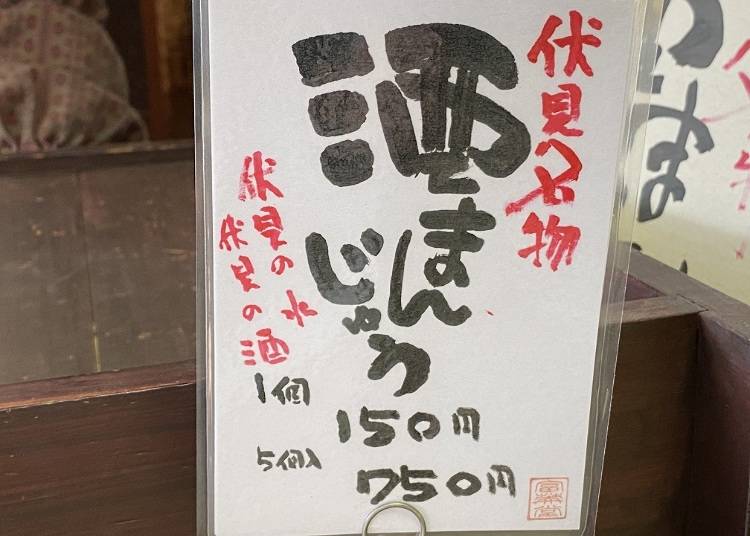 伏見名物
酒まん
じゅう
伏見の水
伏見の酒
1個 150円
5個入 750円
富英堂